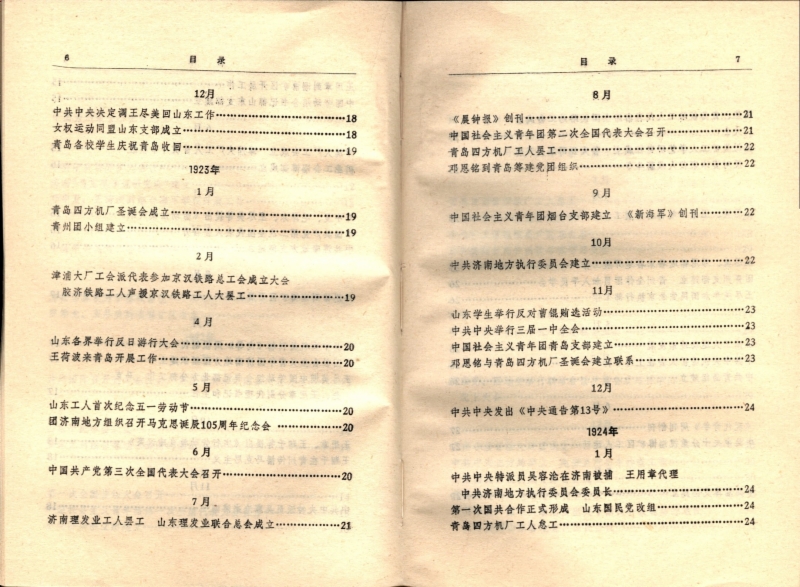 6
目 录
12月
中共中央决定调王尽美回山东工作……18
女权运动同盟山东支部成立……18
青岛各校学生庆祝青岛收回……19
1923年
1月
青岛四方机厂圣诞会成立……19
青州团小组建立……19
2月
津浦大厂工会派代表参加京汉铁路总工会成立大会
胶济铁路工人声援京汉铁路工人大罢工……19
4月
山东各界举行反日游行大会……20
王荷波来青岛开展工作……20
5月
山东工人首次纪念五一劳动节……20
团济南地方组织召开马克思诞辰105周年纪念会……20
6月
中国共产党第三次全国代表大会召开……20
7月
济南理发业工人罢工 山东理发业联合总会成立……21
目 录
7
8月
《晨钟报》创刊……21
中国社会主义青年团第二次全国代表大会召开……21
青岛四方机厂工人罢工……22
邓恩铭到青岛筹建党团组织……22
9月
中国社会主义青年团烟台支部建立 《新海军》创刊……22
10月
中共济南地方执行委员会建立……22
11月
山东学生举行反对曹锟贿选活动……23
中共中央举行三届一中全会……23
中国社会主义青年团青岛支部建立……23
邓恩铭与青岛四方机厂圣诞会建立联系……23
12月
中共中央发出《中央通告第13号》……24
1924年
1月
中共中央特派员吴容沧在济南被捕 王用章代理
中共济南地方执行委员会委员长……24
第一次国共合作正式形成 山东国民党改组……24
青岛四方机厂工人怠工……24